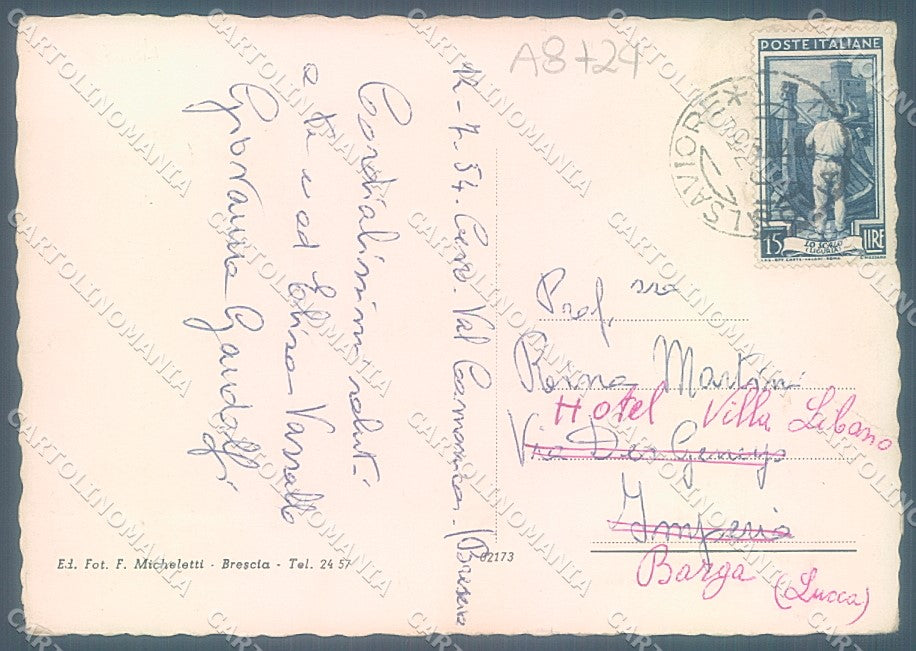 A8+24
12-7-54. Cevo. Val Camonica. (Brescia
Cordialissimi saluti
a te e ad Elisa Varallo
Giovanna Gandolfi
POSTE ITALIANE
15 LIRE
LO SCALO
(LIGURIA)
SAVIORE
Prof. ssa
Martini
Hotel Villa Libano
Via De Genuys
Imperia
Barga (Lucca)
Ed. Fot. F. Micheletti - Brescia - Tel. 24 57
02173
CARTOLINOMANIA